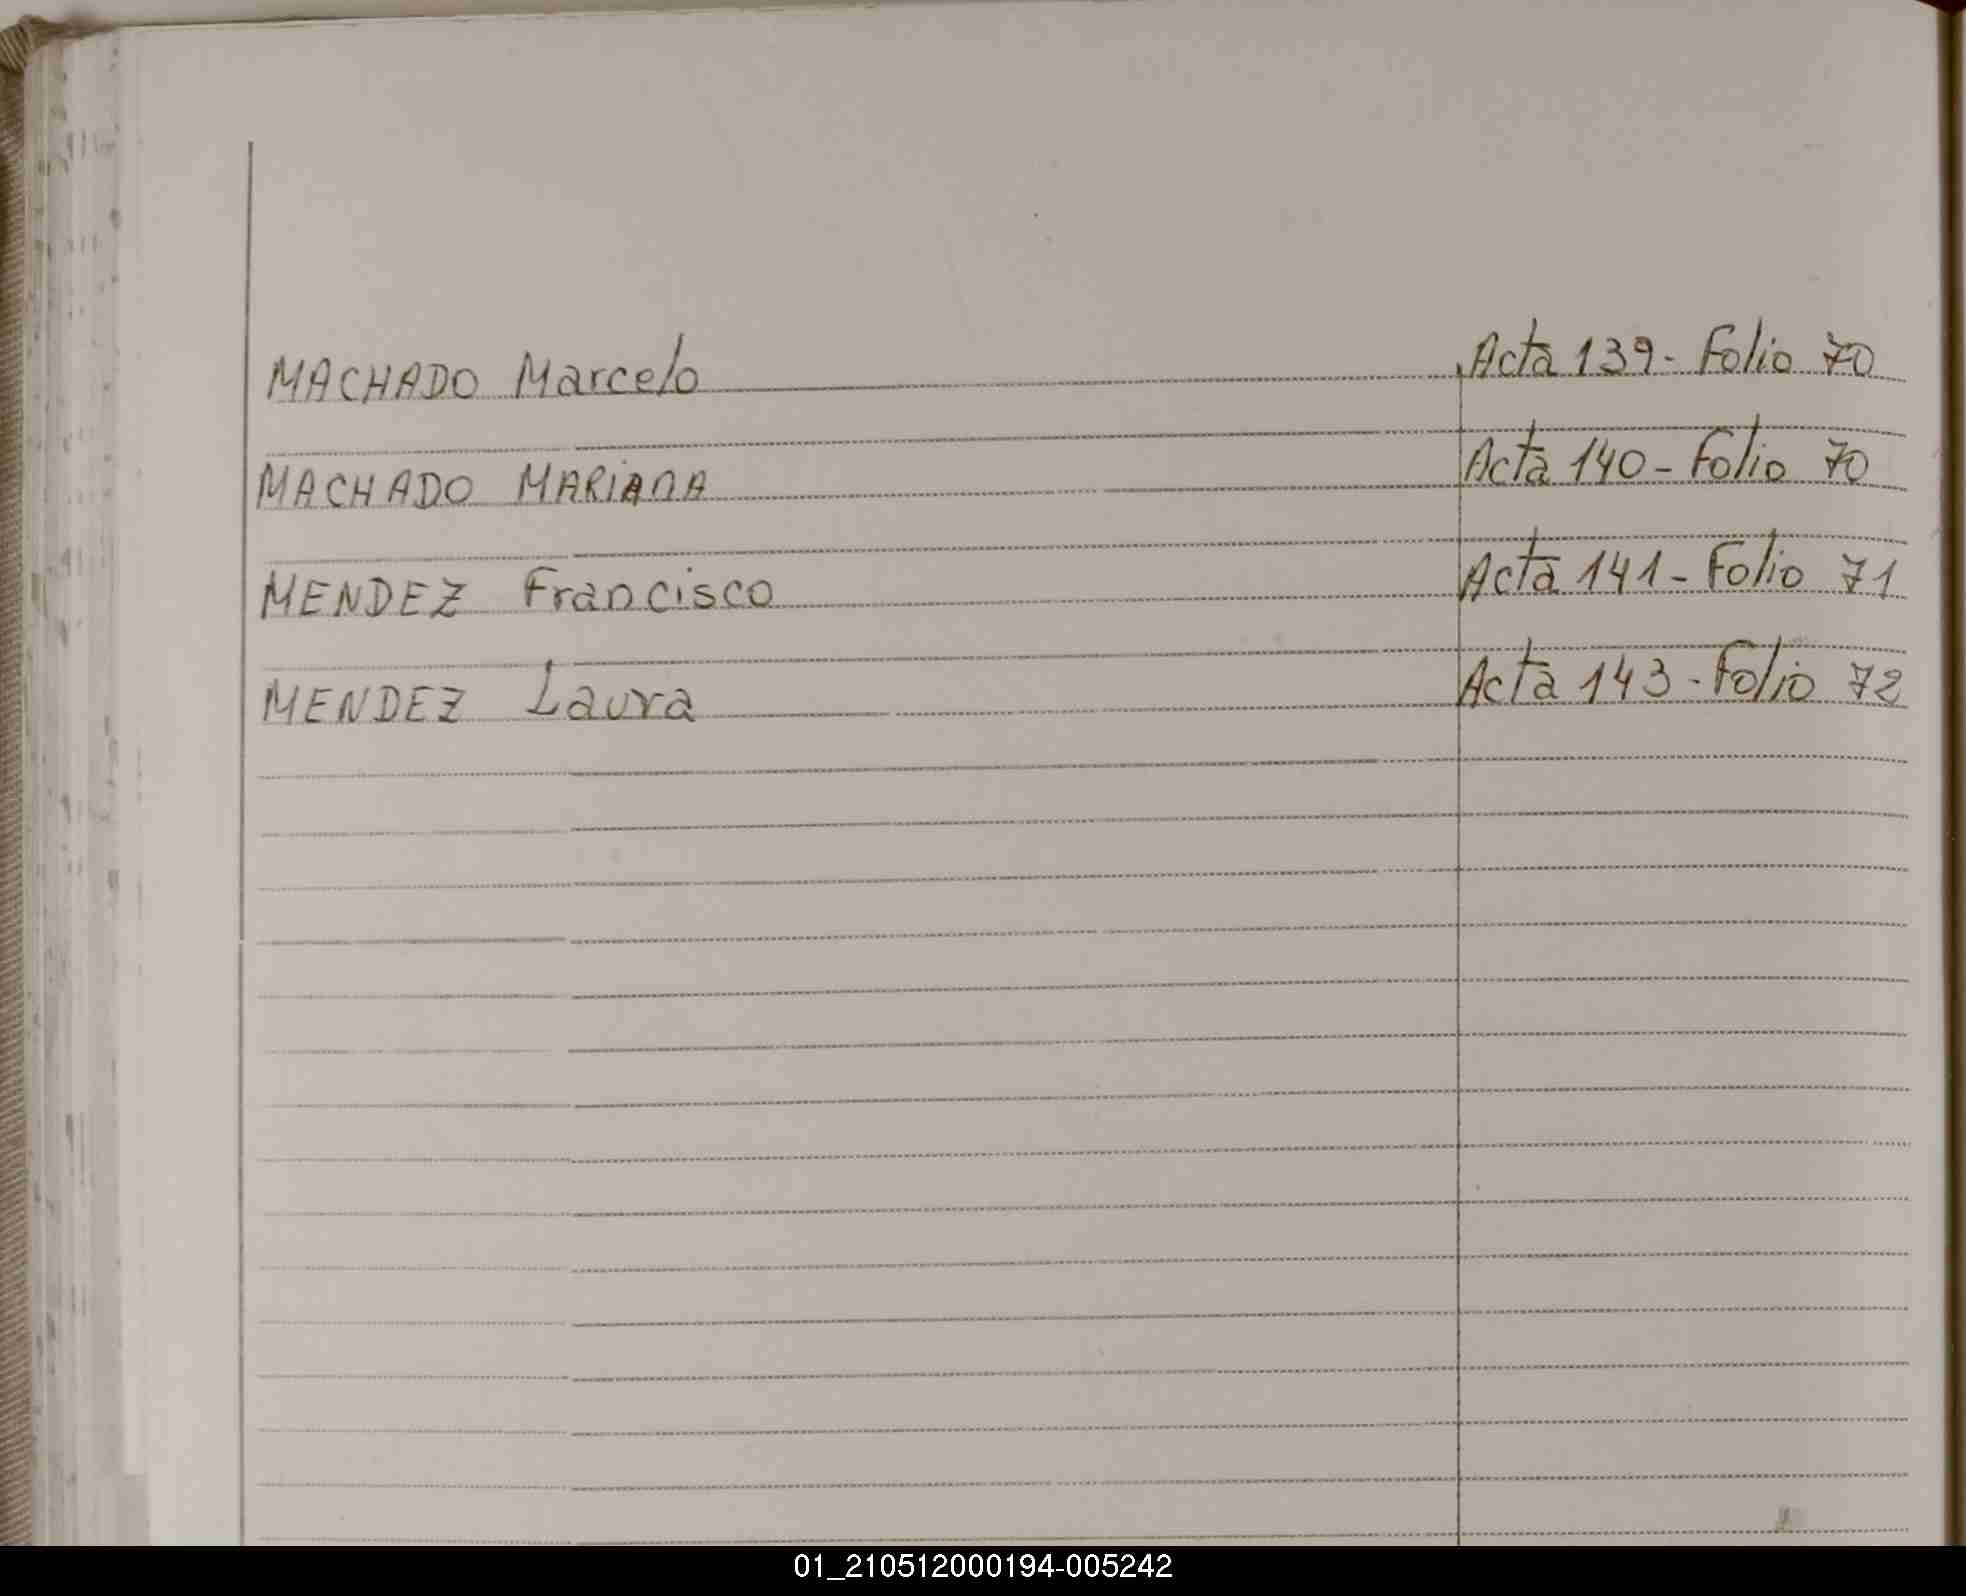 MACHADO Marcelo Acta 139 - Folio 70
MACHADO MARiAnA Acta 140 - Folio 70
MENDEZ Francisco Acta 141 - Folio 71
MENDEZ Laura Acta 143 - Folio 72
01_210512000194-005242